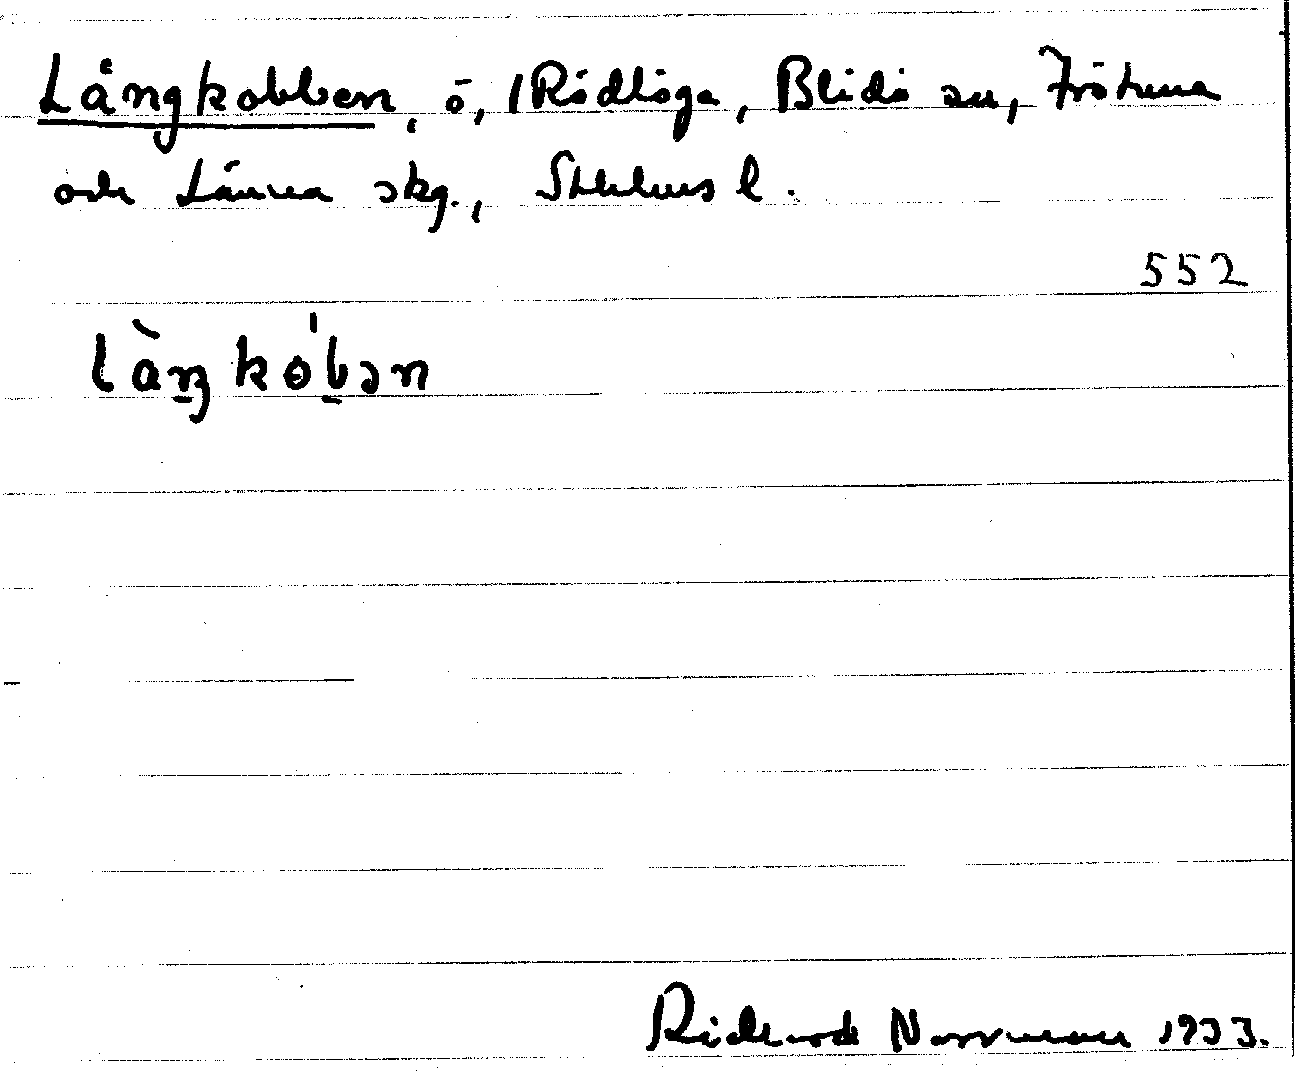 Långkobben, ö, i Rödlöga, Blidö sn, Frötuna
och Länna skg., Sthlms l.
552
làŋkòbən
Rickard Norrman 1933.